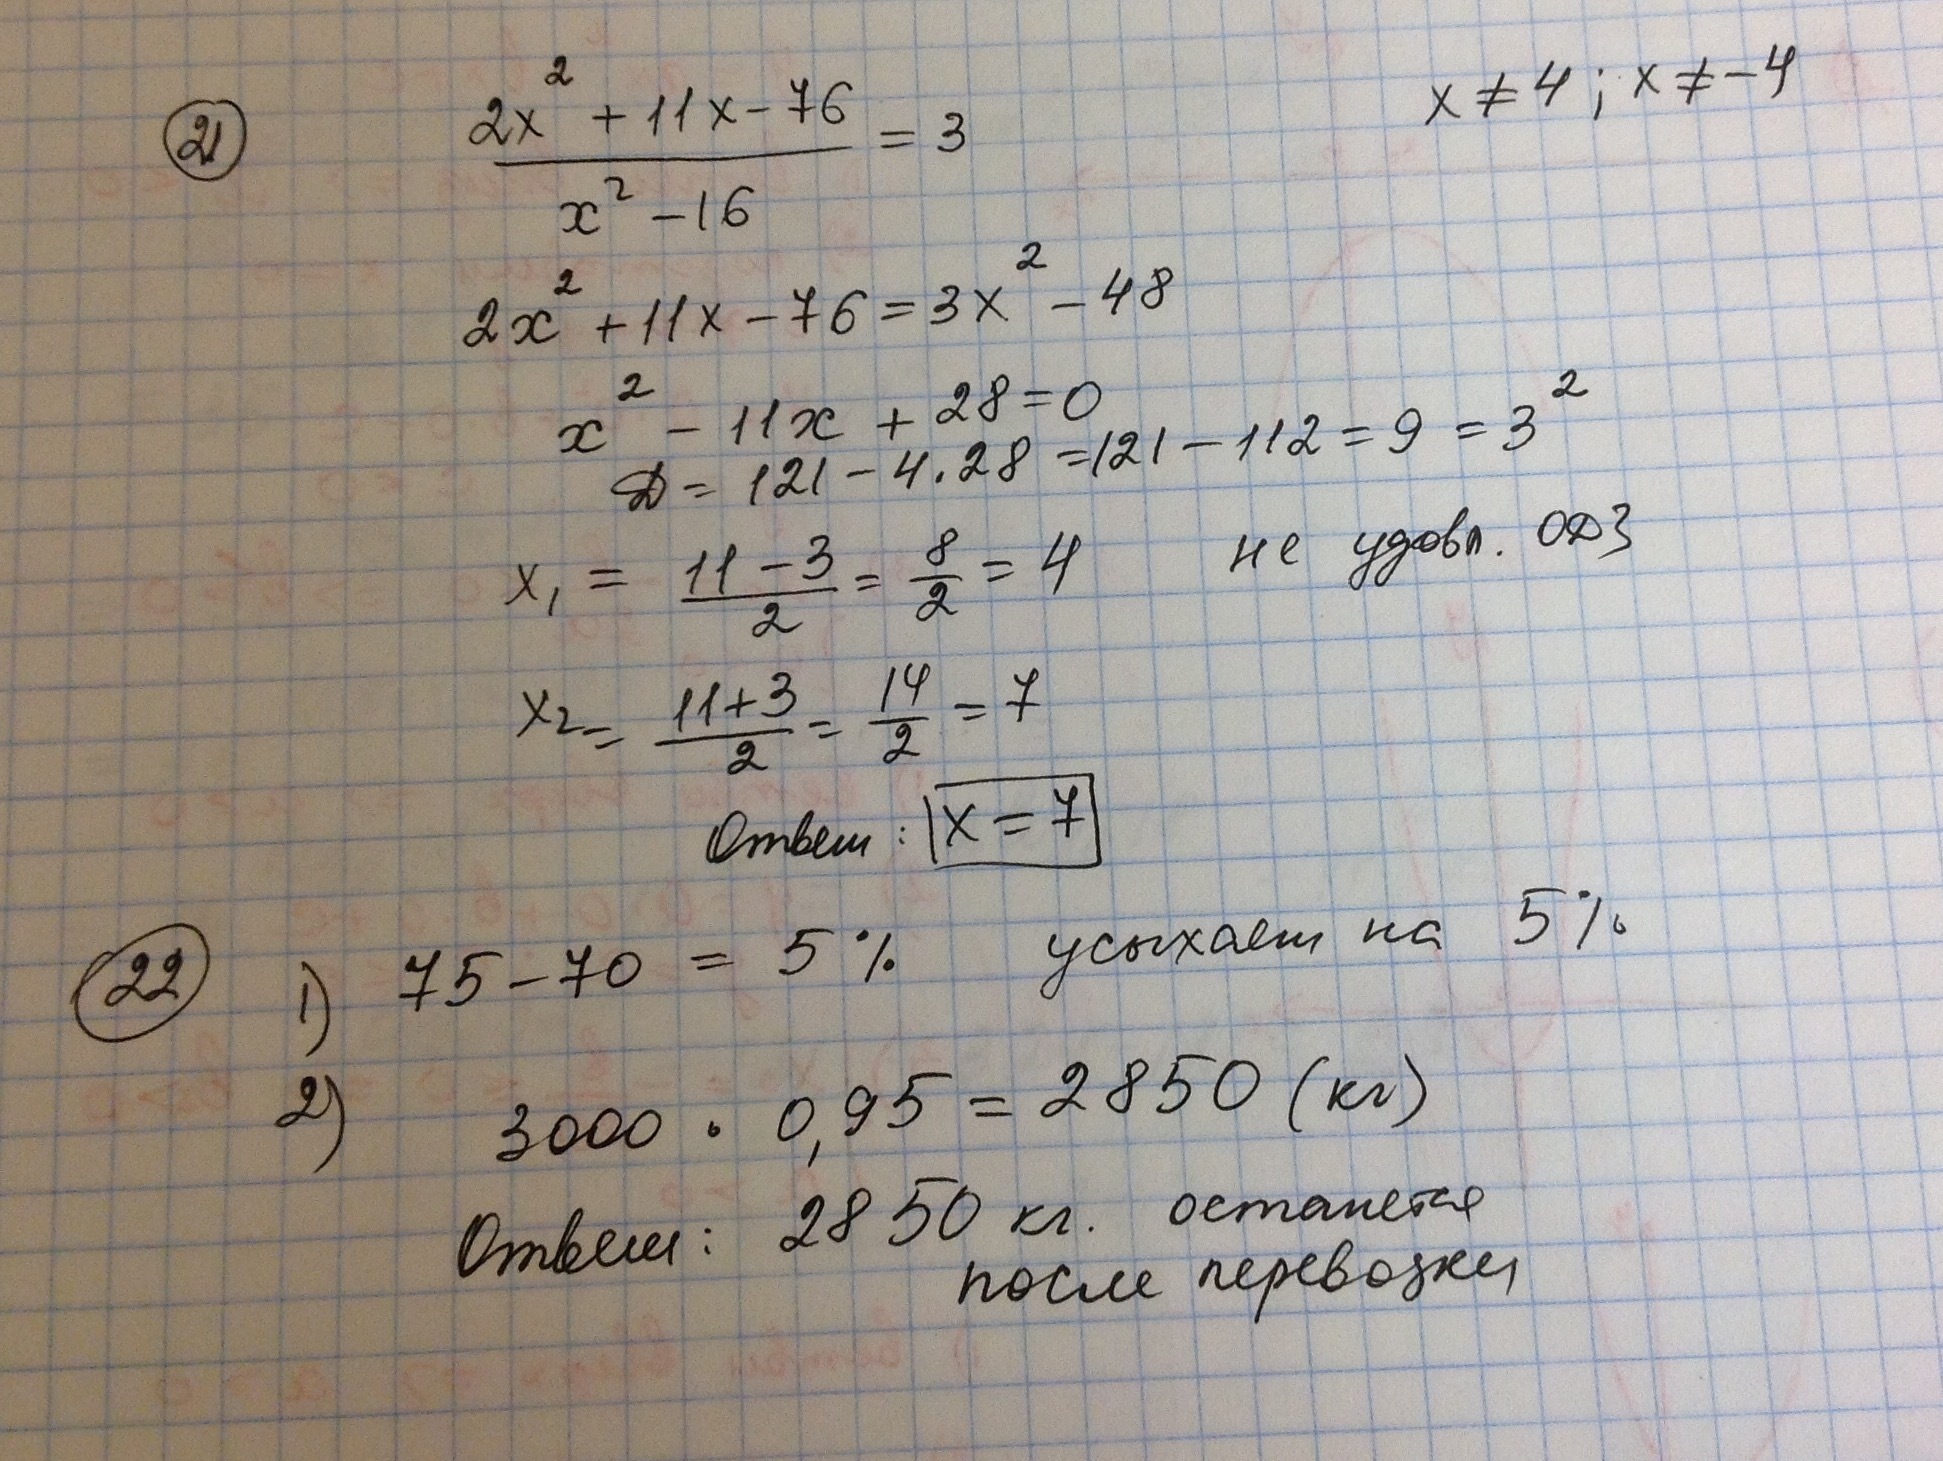 21 (2x² + 11x - 76)/(x² - 16) = 3 x ≠ 4 ; x ≠ -4
2x² + 11x - 76 = 3x² - 48
x² - 11x + 28 = 0
D = 121 - 4 · 28 = 121 - 112 = 9 = 3²
x₁ = (11 - 3)/2 = 8/2 = 4 не удовл. ОДЗ
x₂ = (11 + 3)/2 = 14/2 = 7
Ответ: x = 7
22 1) 75 - 70 = 5% усыхает на 5%
2) 3000 · 0,95 = 2850 (кг)
Ответ: 2850 кг. останется
после перевозки